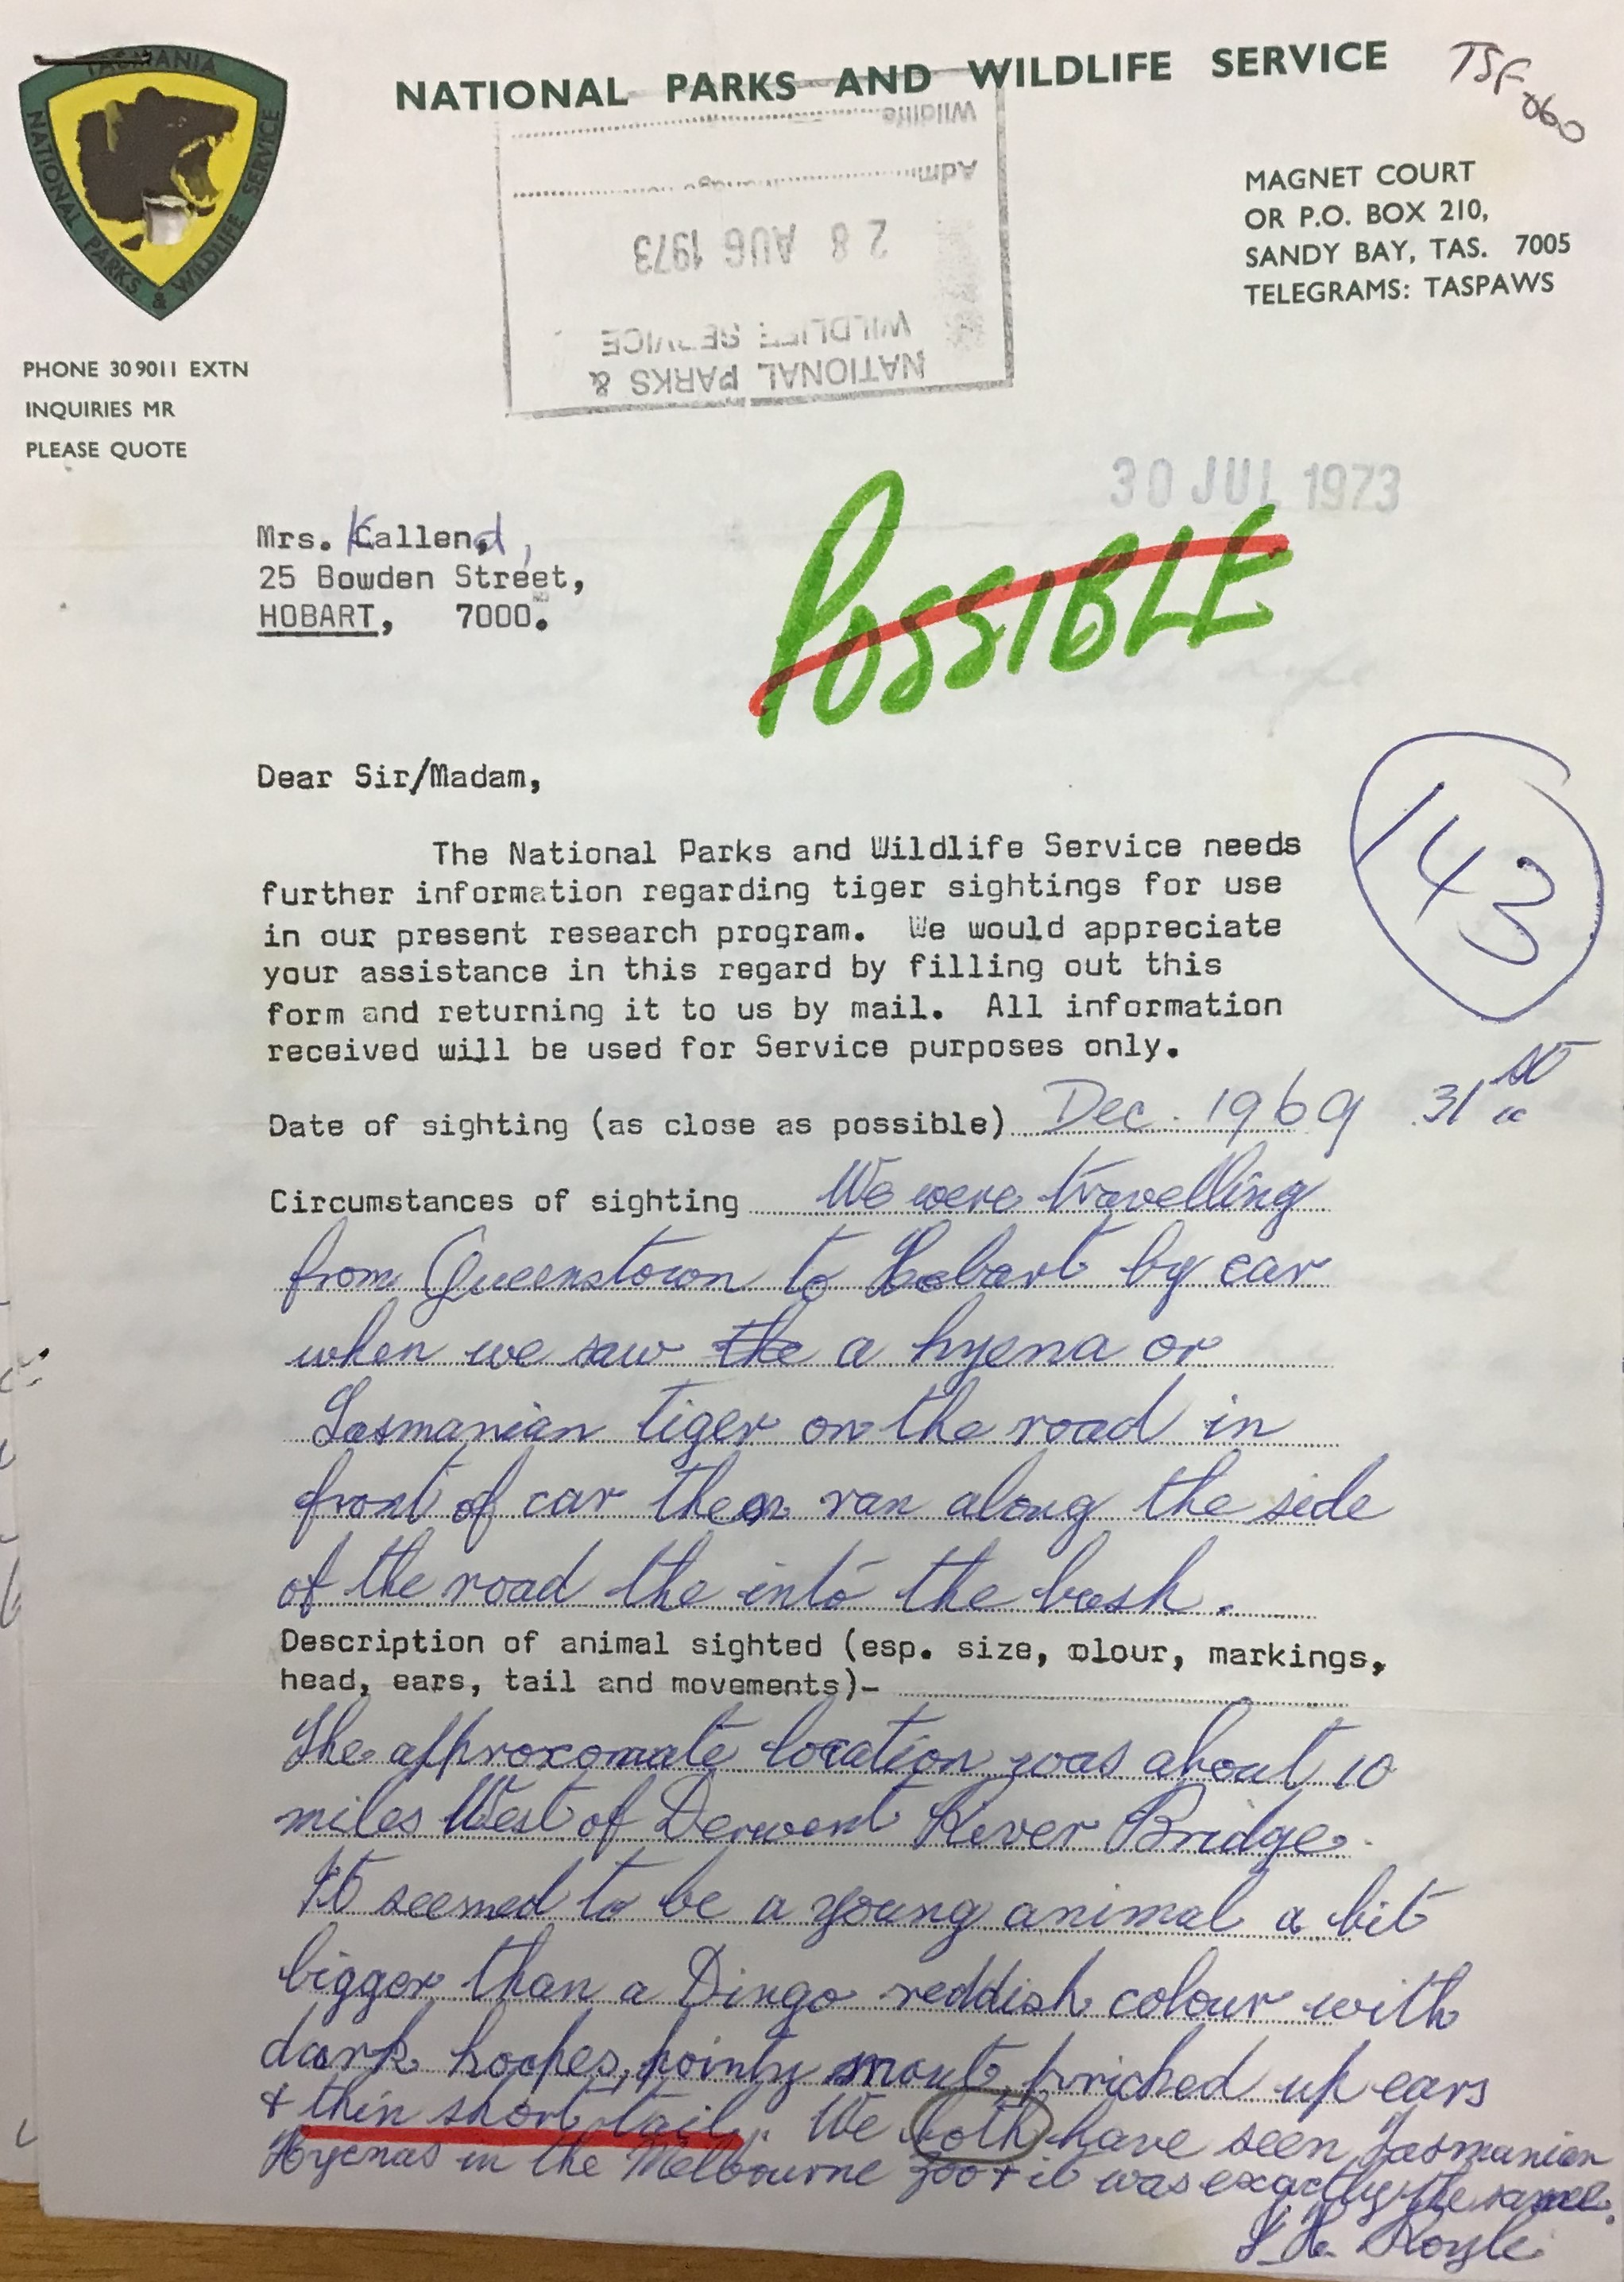 TASMANIA
NATIONAL PARKS & WILDLIFE SERVICE
NATIONAL PARKS AND WILDLIFE SERVICE
TSF 060
MAGNET COURT
OR P.O. BOX 210,
SANDY BAY, TAS. 7005
TELEGRAMS: TASPAWS
NATIONAL PARKS &
WILDLIFE SERVICE
28 AUG 1973
Adm
Wildlife
PHONE 30 9011 EXTN
INQUIRIES MR
PLEASE QUOTE
30 JUL 1973
Mrs. Kallend,
25 Bowden Street,
HOBART, 7000.
POSSIBLE
Dear Sir/Madam,
143
The National Parks and Wildlife Service needs
further information regarding tiger sightings for use
in our present research program. We would appreciate
your assistance in this regard by filling out this
form and returning it to us by mail. All information
received will be used for Service purposes only.
Date of sighting (as close as possible) Dec. 1969 31st
Circumstances of sighting We were travelling
from Queenstown to Hobart by car
when we saw the a hyena or
Tasmanian tiger on the road in
front of car then ran along the side
of the road the into the bush.
Description of animal sighted (esp. size, olour, markings,
head, ears, tail and movements)-
The approxomate location was about 10
miles West of Derwent River Bridge.
It seemed to be a young animal a bit
bigger than a Dingo reddish colour with
dark hoopes, pointy snout, priched up ears
& thin short tail. We both have seen Tasmanian
Hyenas in the Melbourne zoo & it was exactly the same.